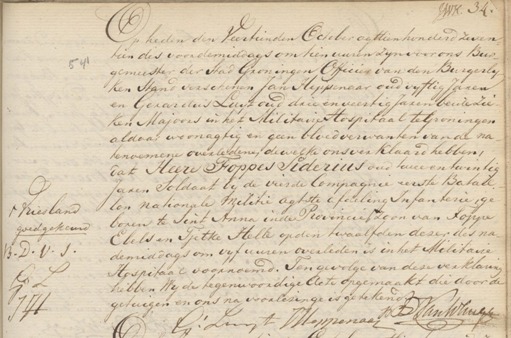 34.
Op heden den Veertienden October achttienhonderd zeven
tien des voordemiddags om tien uuren zyn voor ons Bur
gemeester der Stad Groningen Officier van den Burgerly
ken Stand verschenen Jan oud vyftig jaaren
en Gerardus oud drie en veertig jaaren beide Zie
ken Majoors in het Militaire Hospitaal te Groningen
aldaar woonagtig en geen bloedverwanten van de na
benoemene overledene, dewelke ons verklaard hebben;
dat Heere Foppes Siderius oud twee en twintig
jaaren Soldaat by de vierde Compagnie eerste Batail
lon nationale Militie agtste afdeling Infanterie, ge
boren te Sint Anna in de Provincie zoon van
Eberts en Tjitke op den twaalfden dezer des na
demiddags om vyf uuren overleden is in het Militaire
Hospitaal voornoemd. Ten gevolge van deze verklaring
hebben Wy de tegenwoordige Acte opgemaakt die door de
getuigen en ons na voorlezing is getekend
Vriesland
goedgekeurd
D. V. S.
G L